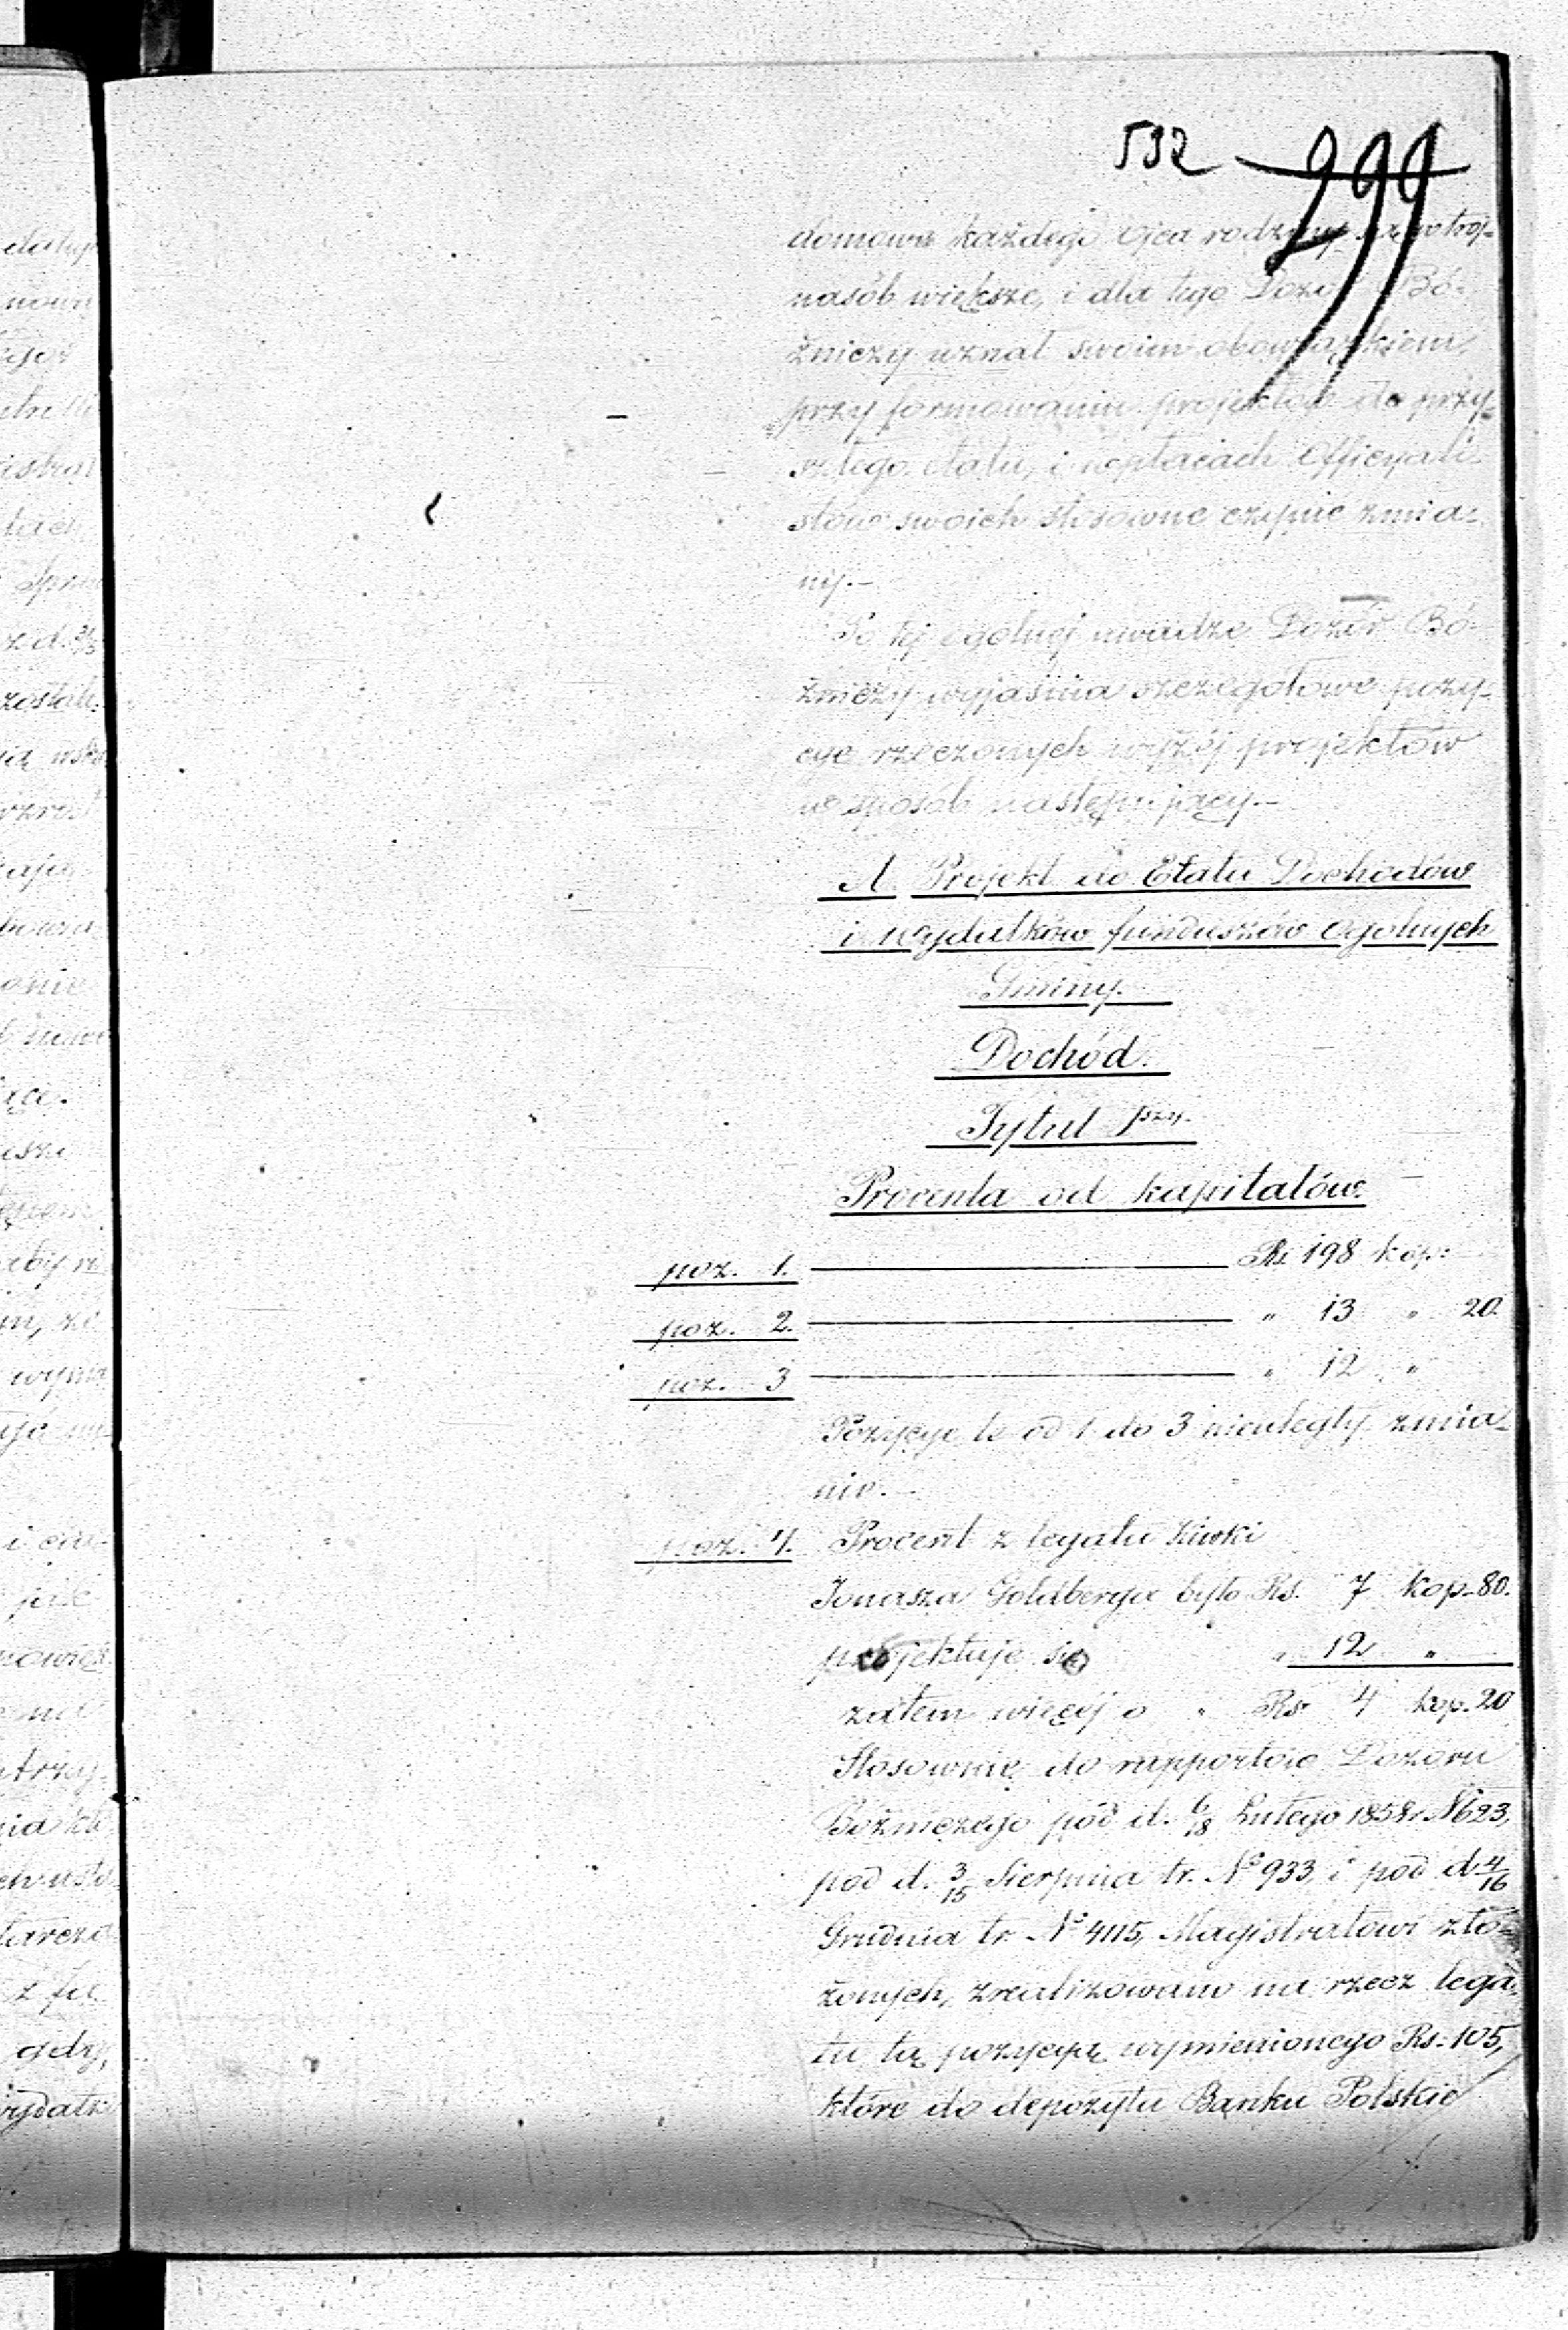 592 299
domowe każdego Ojca rodziny są w trój-
nasób większe, i dla tego Dozór Bó-
żniczy uznał swoim obowiązkiem,
przy formowaniu projektów do przy-
szłego etatu, i w płacach Officyali-
stów swoich stosowne czynić zmia-
ny.-
Po tej ogólnej uwadze Dozór Bó-
żniczy wyjaśnia szczegółowe pozy-
cye rzeczonych wyżéj projektów
w sposób następujący.-
A. Projekt do Etatu Dochodów
i Wydatków funduszów ogólnych
Gminy.
Dochód.
Tytuł 1szy.
Procenta od kapitałów.
poz. 1. Rs. 198 kop:
poz. 2. " 13 " 20.
poz. 3 " 12 "
Pozycye te od 1 do 3 nieuległy zmia-
nie.-
poz. 4. Procent z legatu
Jonasza Goldberga było Rs. 7 kop. 80.
projektuje się " 12 "
zatem więcéj o " Rs. 4 kop. 20
Stosownie do rapportów Dozoru
Bożniczego pod d. 6/18 Lutego 1858 r. N 623,
pod d. 3/15 Sierpnia tr. No 933, i pod d 4/16
Grudnia tr. No 4115, Magistratowi zło-
żonych, zrealizowano na rzecz lega-
tu tą pozycyą wymienionego Rs. 105,
które do depozytu Banku Polskie